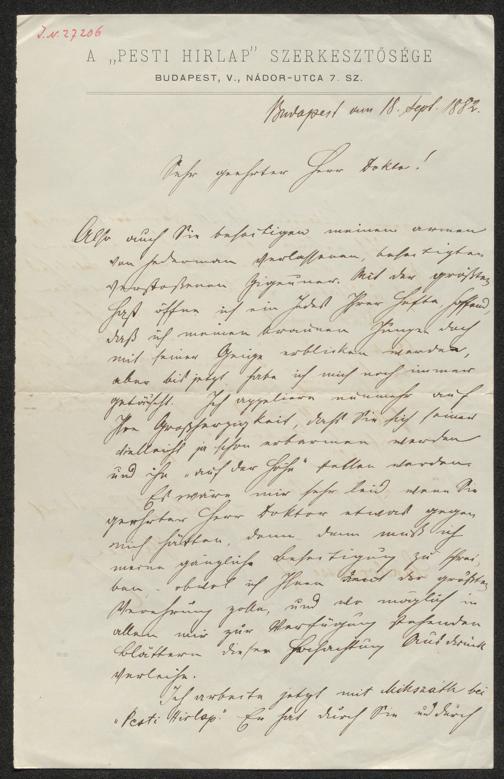 J.N. 27206
A „PESTI HIRLAP” SZERKESZTŐSÉGE
BUDAPEST, V., NÁDOR-UTCA 7. SZ.
Budapest am 18. Sept. 1882.
Sehr geehrter Herr Doktor!
Also auch Sie beseitigen meinen armen
von Jederman verlassenen, beseitigten
verstoßenen Zigeuner. Mit der größten
Hast öffne ich ein Jedes Ihrer Hefte hoffend,
daß ich meinen braunen Jungen doch
mit seiner Geige erblicken werde,
aber bis jetzt habe ich mich noch immer
getäuscht. Ich appeliere nunmehr auf
Ihre Großherzigkeit, daß Sie sich seiner
vielleicht ja schon erbarmen werden
und ihn „auf der Höhe” stellen werden.
Es wäre mir sehr leid, wenn Sie
geehrter Herr Doktor etwas gegen
mich hätten, denn dem muß ich
meine gängliche Beseitigung zu schrei-
ben - obwol ich Ihnen der größten
Verehrung zolle, und wo möglich in
allen mir zur Verfügung stehenden
Blättern dieser Hochachtung Ausdruck
verleihe.
Ich arbeite jetzt mit Mikszáth bei
„Pesti Hirlap.” Er hat durch Sie und durch